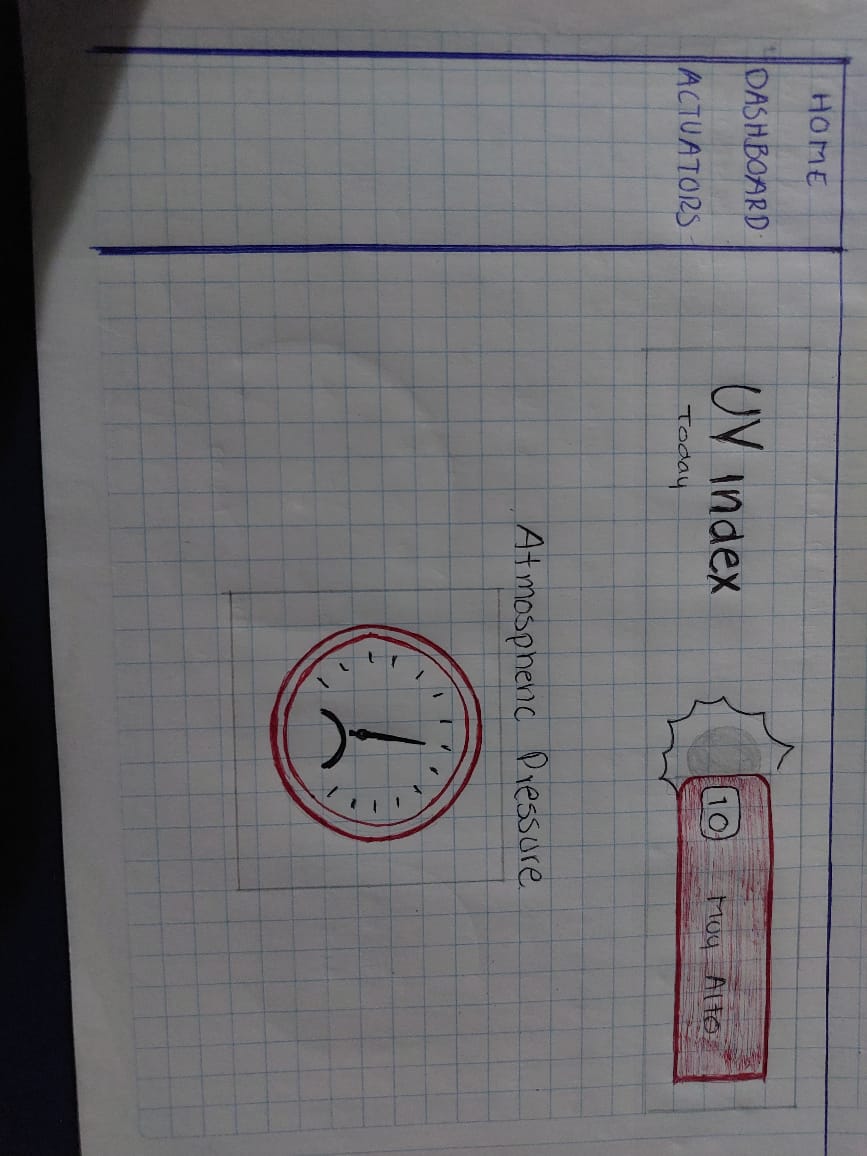 HOME
DASHBOARD
ACTUATORS
UV index
Today
10 Muy Alto
Atmospheric Pressure